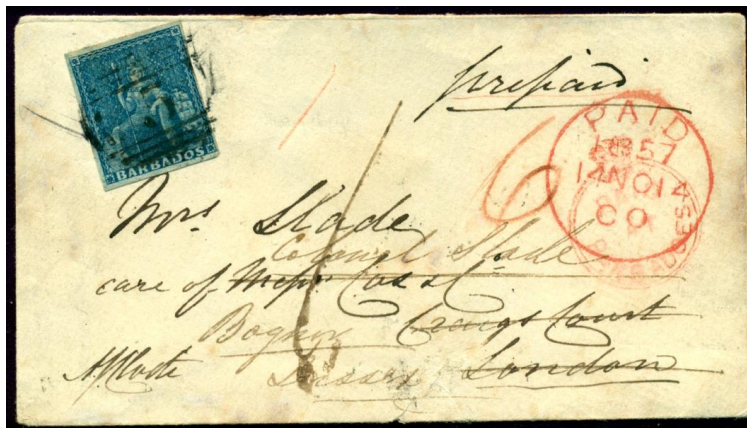 BARBADOS
prepaid
PAID
1857
14 NO 14
CO
BARBADOES
6
1
Mrs Slade
Colonel Slade
care of Messrs Cox & Co
Bognor Craigs Court
Sussex London